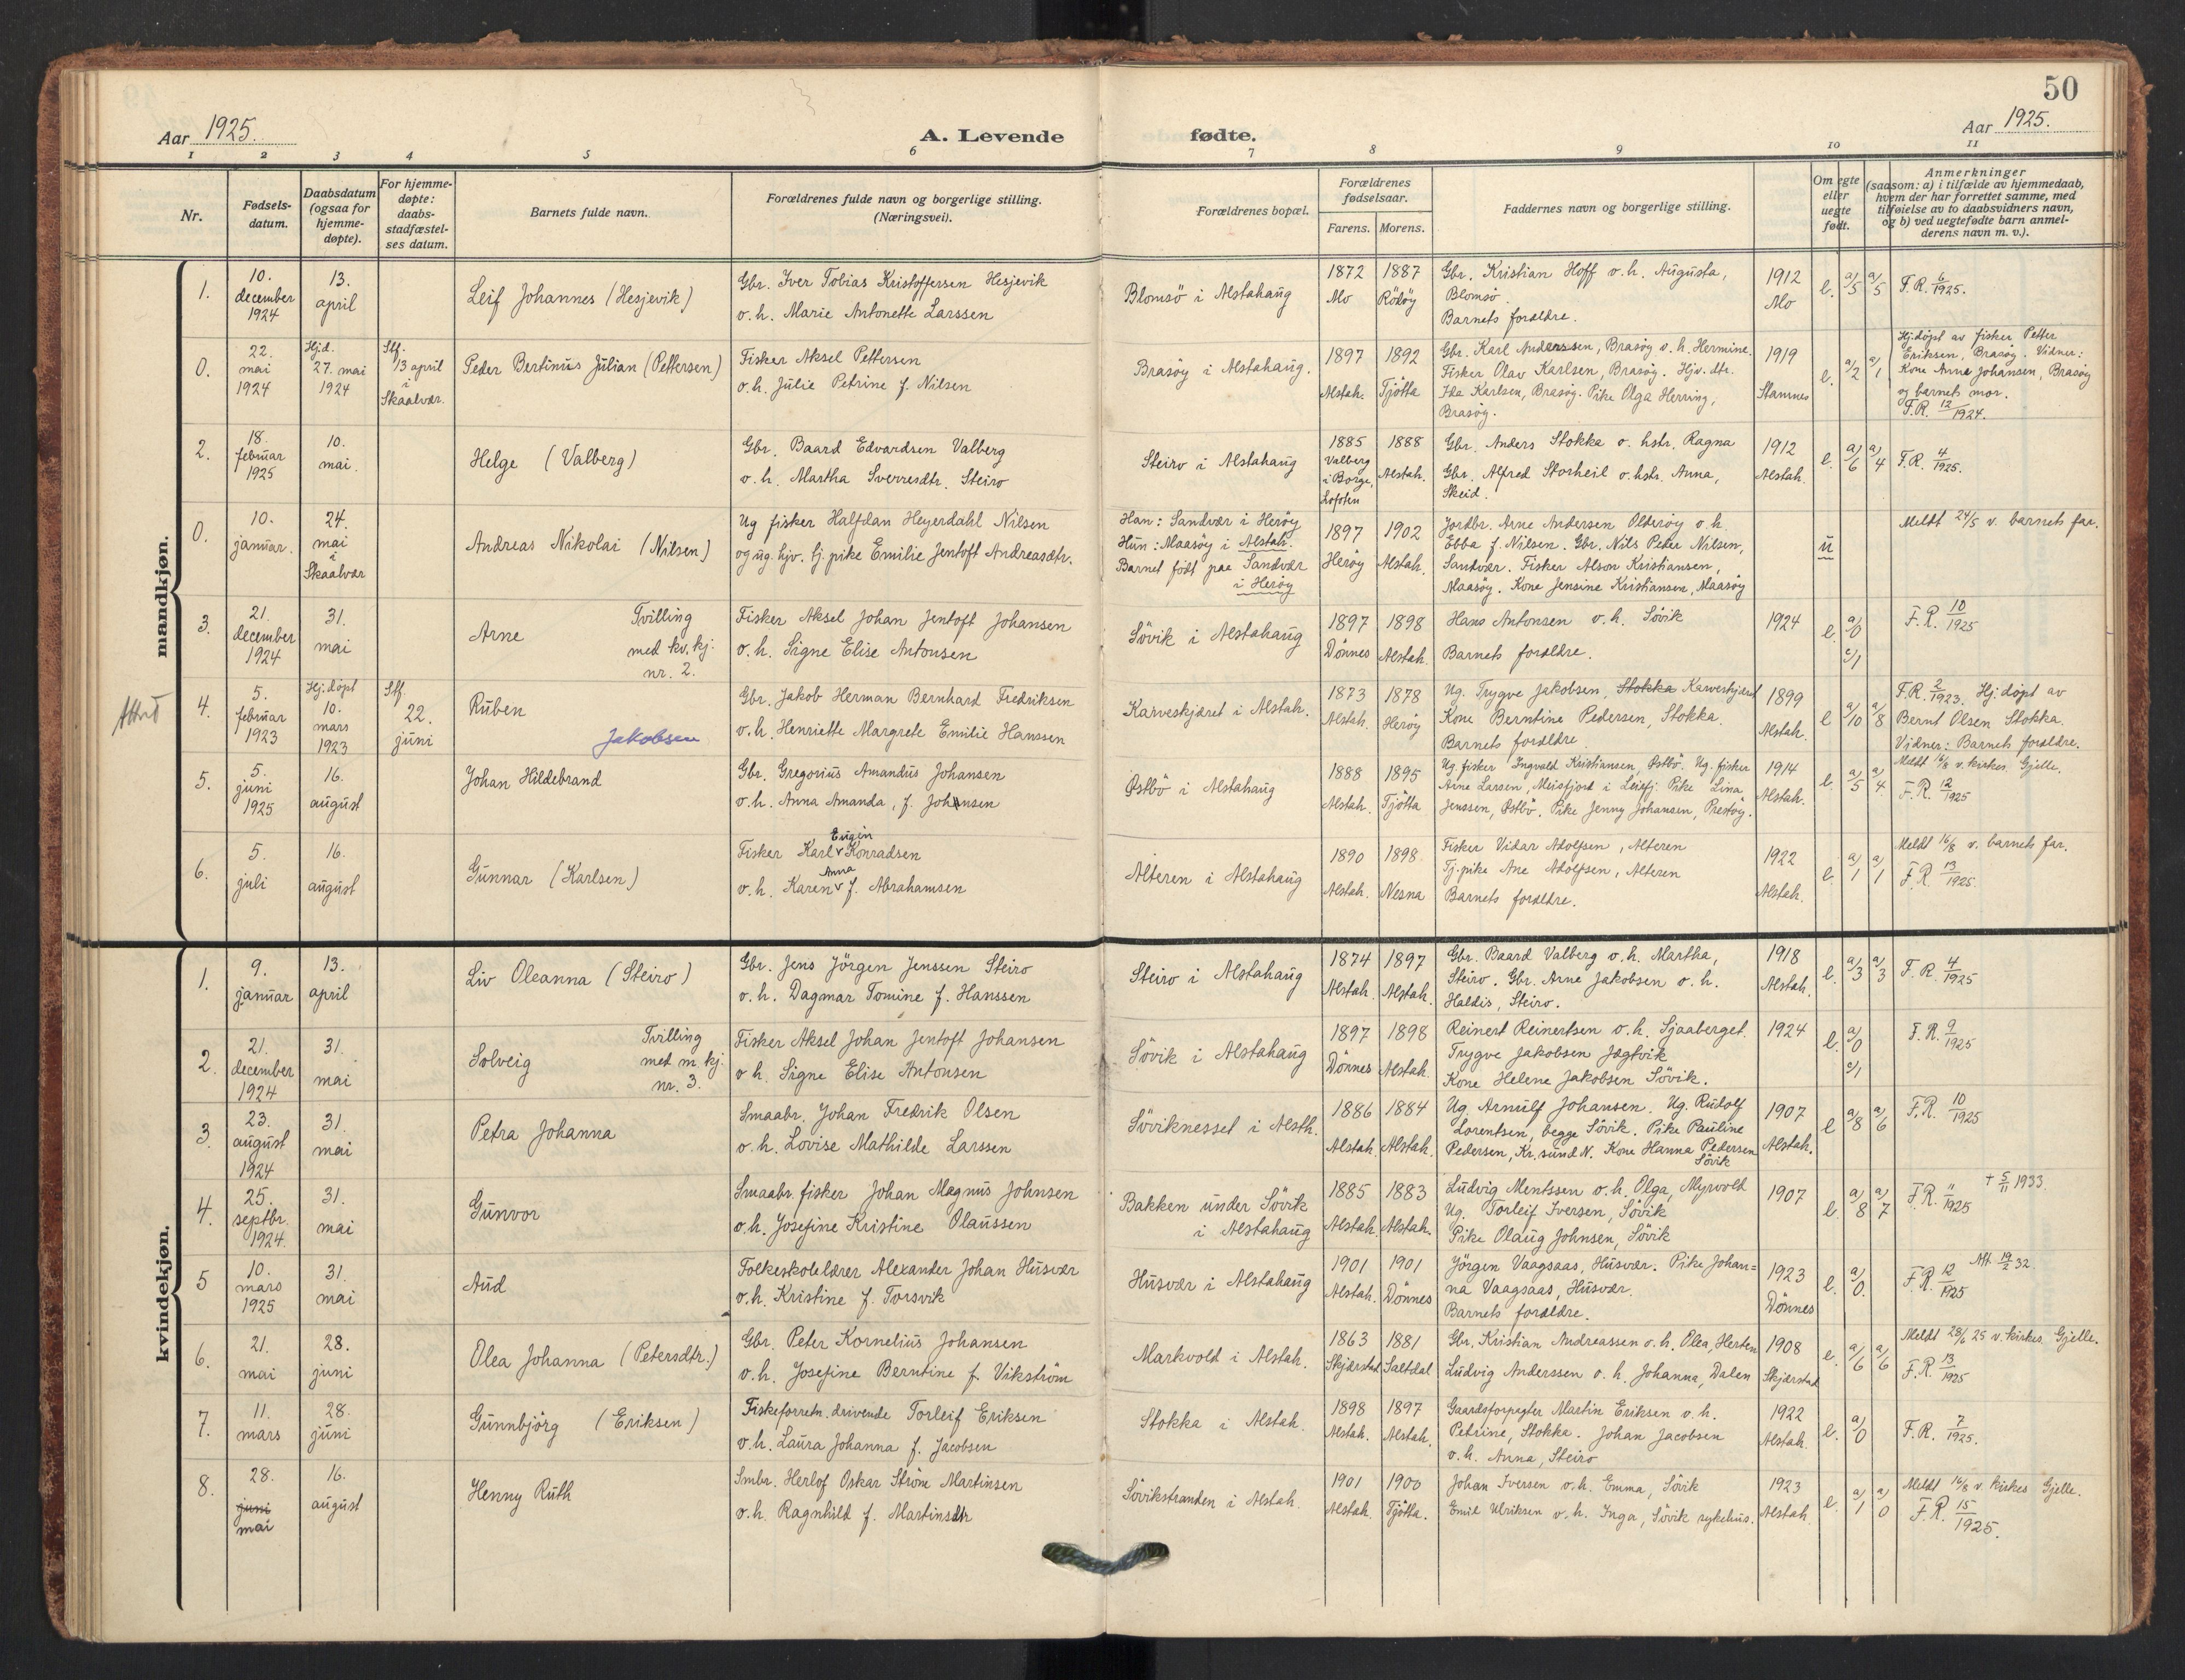 50
Aar 1925.
A. Levende fødte.
Aar 1925.
1 2 3 4 5 6 7 8 9 10 11
Nr.
Fødsels-
datum.
Daabsdatum
(ogsaa for
hjemme-
døpte).
For hjemme-
døpte:
daabs-
stadfæstel-
ses datum.
Barnets fulde navn.
Forældrenes fulde navn og borgerlige stilling.
(Næringsvei).
Forældrenes bopæl.
Forældrenes
fødselsaar.
Farens. Morens.
Faddernes navn og borgerlige stilling.
Om egte
eller
uegte
født.
Anmerkninger
(saasom: a) i tilfælde av hjemmedaab,
hvem der har forrettet samme, med
tilføielse av to daabsvidners navn,
og b) ved uegtefødte barn anmel-
derens navn m. v.).
mandkjøn.
1.
10.
december
1924
13.
april
Leif Johannes (Hesjevik)
Gbr. Iver Tobias Kristoffersen Hesjevik
o. h. Marie Antonette Larssen
Blomsö i Alstahaug
1872
Mo
1887
Rödöy
Gbr. Kristian Hoff o. h. Augusta,
Blomsö.
Barnets forældre.
1912
Mo
e. a/5 a/5
F. R. 6/1925.
0.
22.
mai
1924
Hjd.
27. mai
1924
Stf.
13 april
i
Skaalvær.
Peder Bertinus Julian (Pettersen)
Fisker Aksel Pettersen
o. h. Julie Petrine f. Nilsen
Brasöy i Alstahaug.
1897
Alstah.
1892
Tjötta
Gbr. Karl Anderssen, Brasöy o. h. Hermine.
Fisker Olav Karlsen, Brasöy. Hjv. dtr.
Ida Karlsen, Brasöy. Pike Olga Herring,
Brasöy.
1919
Stamnes
e. a/2 a/1
Hj.döpt av fisker Petter
Eriksen, Brasöy. Vidner:
Kone Anna Johansen, Brasöy
og barnets mor.
F. R. 12/1924.
2.
18.
februar
1925
10.
mai.
Helge (Valberg)
Gbr. Baard Edvardsen Valberg
o. h. Martha Sverresdtr. Steiro
Steiro i Alstahaug
1885
Valberg
i Borge,
Lofoten
1888
Alstah.
Gbr. Anders Stokka o. hstr. Ragna
Gbr. Alfred Storheil o. hstr. Anna,
Skeid.
1912
Alstah.
e. a/6 a/4
F. R. 4/1925.
0.
10.
januar.
24.
mai
i
Skaalvær
Andreas Nikolai (Nilsen)
Ug fisker Halfdan Heyerdahl Nilsen
og ug. hjv. tj. pike Emilie Jentoft Andreasdtr.
Han: Sandvær i Heröy
Hun: Maasöy i Alstah.
Barnet födt paa Sandvær
i Heröy
1897
Heröy
1902
Alstah.
Jordbr. Arne Andersen Olderöy o. h.
Ebba f. Nilsen. Gbr. Nils Peter Nilsen,
Sandvær. Fisker Alson Kristiansen,
Maasöy. Kone Jensine Kristiansen, Maasöy
u
Meldt 24/5 v. barnets far.
3.
21.
december
1924
31.
mai
Arne
Tvilling
med kv. kj.
nr. 2.
Fisker Aksel Johan Jentoft Johansen
o. h. Signe Elise Antonsen
Sövik i Alstahaug
1897
Dönnes
1898
Alstah.
Hans Antonsen o. h. Sövik
Barnets forældre.
1924
e. a/0
c/1
F. R. 10/1925
4.
5.
februar
1923
Hj.döpt
10.
mars
1923
Stf.
22.
juni
Ruben
Jakobsen
Gbr. Jakob Herman Bernhard Fredriksen
o. h. Henriette Margrete Emilie Hanssen
Karveskjæret i Alstah.
1873
Alstah.
1878
Heröy
Ug. Trygve Jakobsen, Stokka Karveskjæret
Kone Berntine Pedersen, Stokka.
Barnets forældre
1899
Alstah.
e a/10 a/8
F. R. 2/1923. Hj. döpt av
Bernt Olsen Stokka.
Vidner: Barnets forældre.
5.
5.
juni
1925
16.
august
Johan Hildebrand
Gbr. Gregorius Amandus Johansen
o. h. Anna Amanda, f. Johnsen
Östbö i Alstahaug
1888
Alstah.
1895
Tjötta
Ug fisker Ingvald Kristiansen, Östbö. Ug. fisker
Arne Larsen, Meisfjord i Leirfj. Pike Lina
Jenssen, Östbö. Pike Jenny Johansen, Prestöy.
1914
Alstah.
e. a/5 a/4.
Meldt 16/8 v. kirkes. Gjelle.
F. R. 12/1925
6.
5.
juli
16.
august
Gunnar (Karlsen)
Eugen
Fisker Karl v Konradsen
Anna
o. h. Karen v f. Abrahamsen
Alteren i Alstahaug
1890
Alstah.
1898
Nesna
Fisker Vidar Adolfsen, Alteren
Tj. pike Ane Adolfsen, Alteren
Barnets forældre.
1922
Alstah.
e. a/1 a/1
Meldt 16/8 v. barnets far.
F. R. 13/1925.
kvindekjøn.
1.
9.
januar
13.
april
Liv Oleanna (Steiro)
Gbr. Jens Jörgen Jenssen Steiro
o. h. Dagmar Tomine f. Hanssen
Steiro i Alstahaug
1874
Alstah.
1897
Alstah.
Gbr. Baard Valberg o. h. Martha,
Steiro. Gbr. Arne Jakobsen o. h.
Haldis, Steiro.
1918
Alstah.
e. a/3 a/3
F. R. 4/1925
2.
21.
december
1924
31.
mai
Solveig
Tvilling
med m. kj.
nr. 3.
Fisker Aksel Johan Jentoft Johansen
o h. Signe Elise Antonsen
Sövik i Alstahaug
1897
Dönnes
1898
Alstah.
Reinert Reinertsen o. h. Sjaaberget.
Trygve Jakobsen Jægtvik
Kone Helene Jakobsen Sövik.
1924
e. a/0
c/1
F. R. 9/1925
3.
23.
august
1924
31.
mai
Petra Johanna
Smaabr. Johan Fredrik Olsen
o. h. Lovise Mathilde Larssen
Söviknesset i Alsth.
1886
Alstah.
1884
Alstah.
Ug. Arnulf Johansen. Ug. Rudolf
Lorentsen, begge Sövik. Pike Pauline
Pedersen, Kr.sund N. Kone Hanna Pedersen
Sövik
1907
Alstah.
e a/8 a/6
F. R. 10/1925
4.
25.
septbr.
1924.
31.
mai
Gunvor
Smaabr. fisker Johan Magnus Johnsen
o. h. Josefine Kristine Olaussen
Bakken under Sövik
i Alstahaug
1885
Alstah.
1883
Alstah.
Ludvig Mentssen o. h. Olga, Myrvold
Ug. Torleif Iversen, Sövik
Pike Olaug Johnsen, Sövik
1907
e. a/8 a/7
F. R. 11/1925
† 5/11 1933.
5
10.
mars
1925
31.
mai
Aud
Folkeskolelærer Alexander Johan Husvær
o. h. Kristine f. Torsvik
Husvær i Alstahaug
1901
Alstah.
1901
Dönnes
Jörgen Vaagsaas, Husvær. Pike Johan=
na Vaagsaas, Husvær.
Barnets forældre.
1923
Dönnes
e. a/0.
F. R. 12/1925
Att. 19/2 32.
6.
21.
mai
28.
juni
Olea Johanna (Petersdtr.)
Gbr. Peter Kornelius Johansen
o. h. Josefine Berntine f. Vikström
Markvold i Alstah.
1863
Skjærstad
1881
Saltdal
Gbr. Kristian Andreassen o. h. Olea, Herten
Ludvig Anderssen o. h. Johanna, Dalen
1908
Skjærstad
e. a/6 a/6
Meldt 28/6 25 v. kirkes. Gjelle.
F. R. 13/1925
7.
11.
mars
28.
juni
Gunnbjörg (Eriksen)
Fiskeforretn. drivende Torleif Eriksen
o. h. Laura Johanna f. Jacobsen
Stokka i Alstah.
1898
Alstah.
1897
Alstah.
Gaardsforpagter Martin Eriksen o. h.
Petrine, Stokka. Johan Jacobsen
o. h. Anna, Steiro
1922
Alstah.
e. a/0
F. R. 7/1925.
8.
28.
juni
mai
16.
august
Henny Ruth
Smbr. Herlof Oskar Ström Martinsen
o. h. Ragnhild f. Martinsdtr
Sövikstranden i Alstah.
1901
Alstah.
1900
Tjötta.
Johan Iversen o. h. Emma, Sövik
Emil Ulriksen o. h. Inga, Sövik sykehus.
1923
Alstah.
e. a/1 a/0
Meldt 16/8 v. kirkes Gjelle.
F. R. 15/1925.